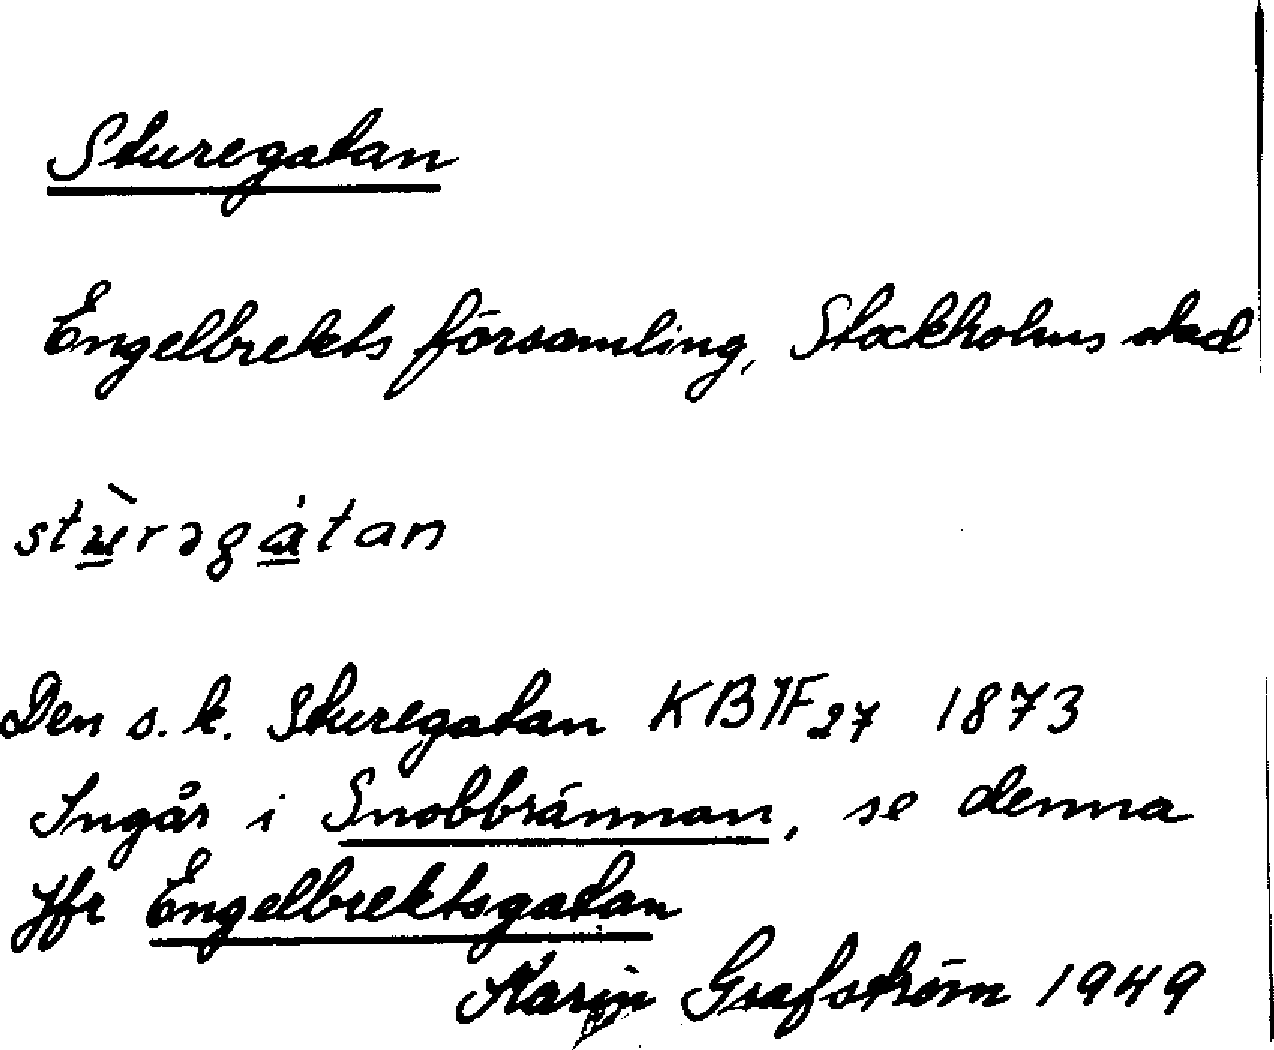 Sturegatan
Engelbrekts församling, Stockholms stad
stùrəgátan
Den s.k. Sturegatan KBTF27 1873
Ingår i Snobbrännan, se denna
Jfr Engelbrektsgatan
Karin Grafström 1949